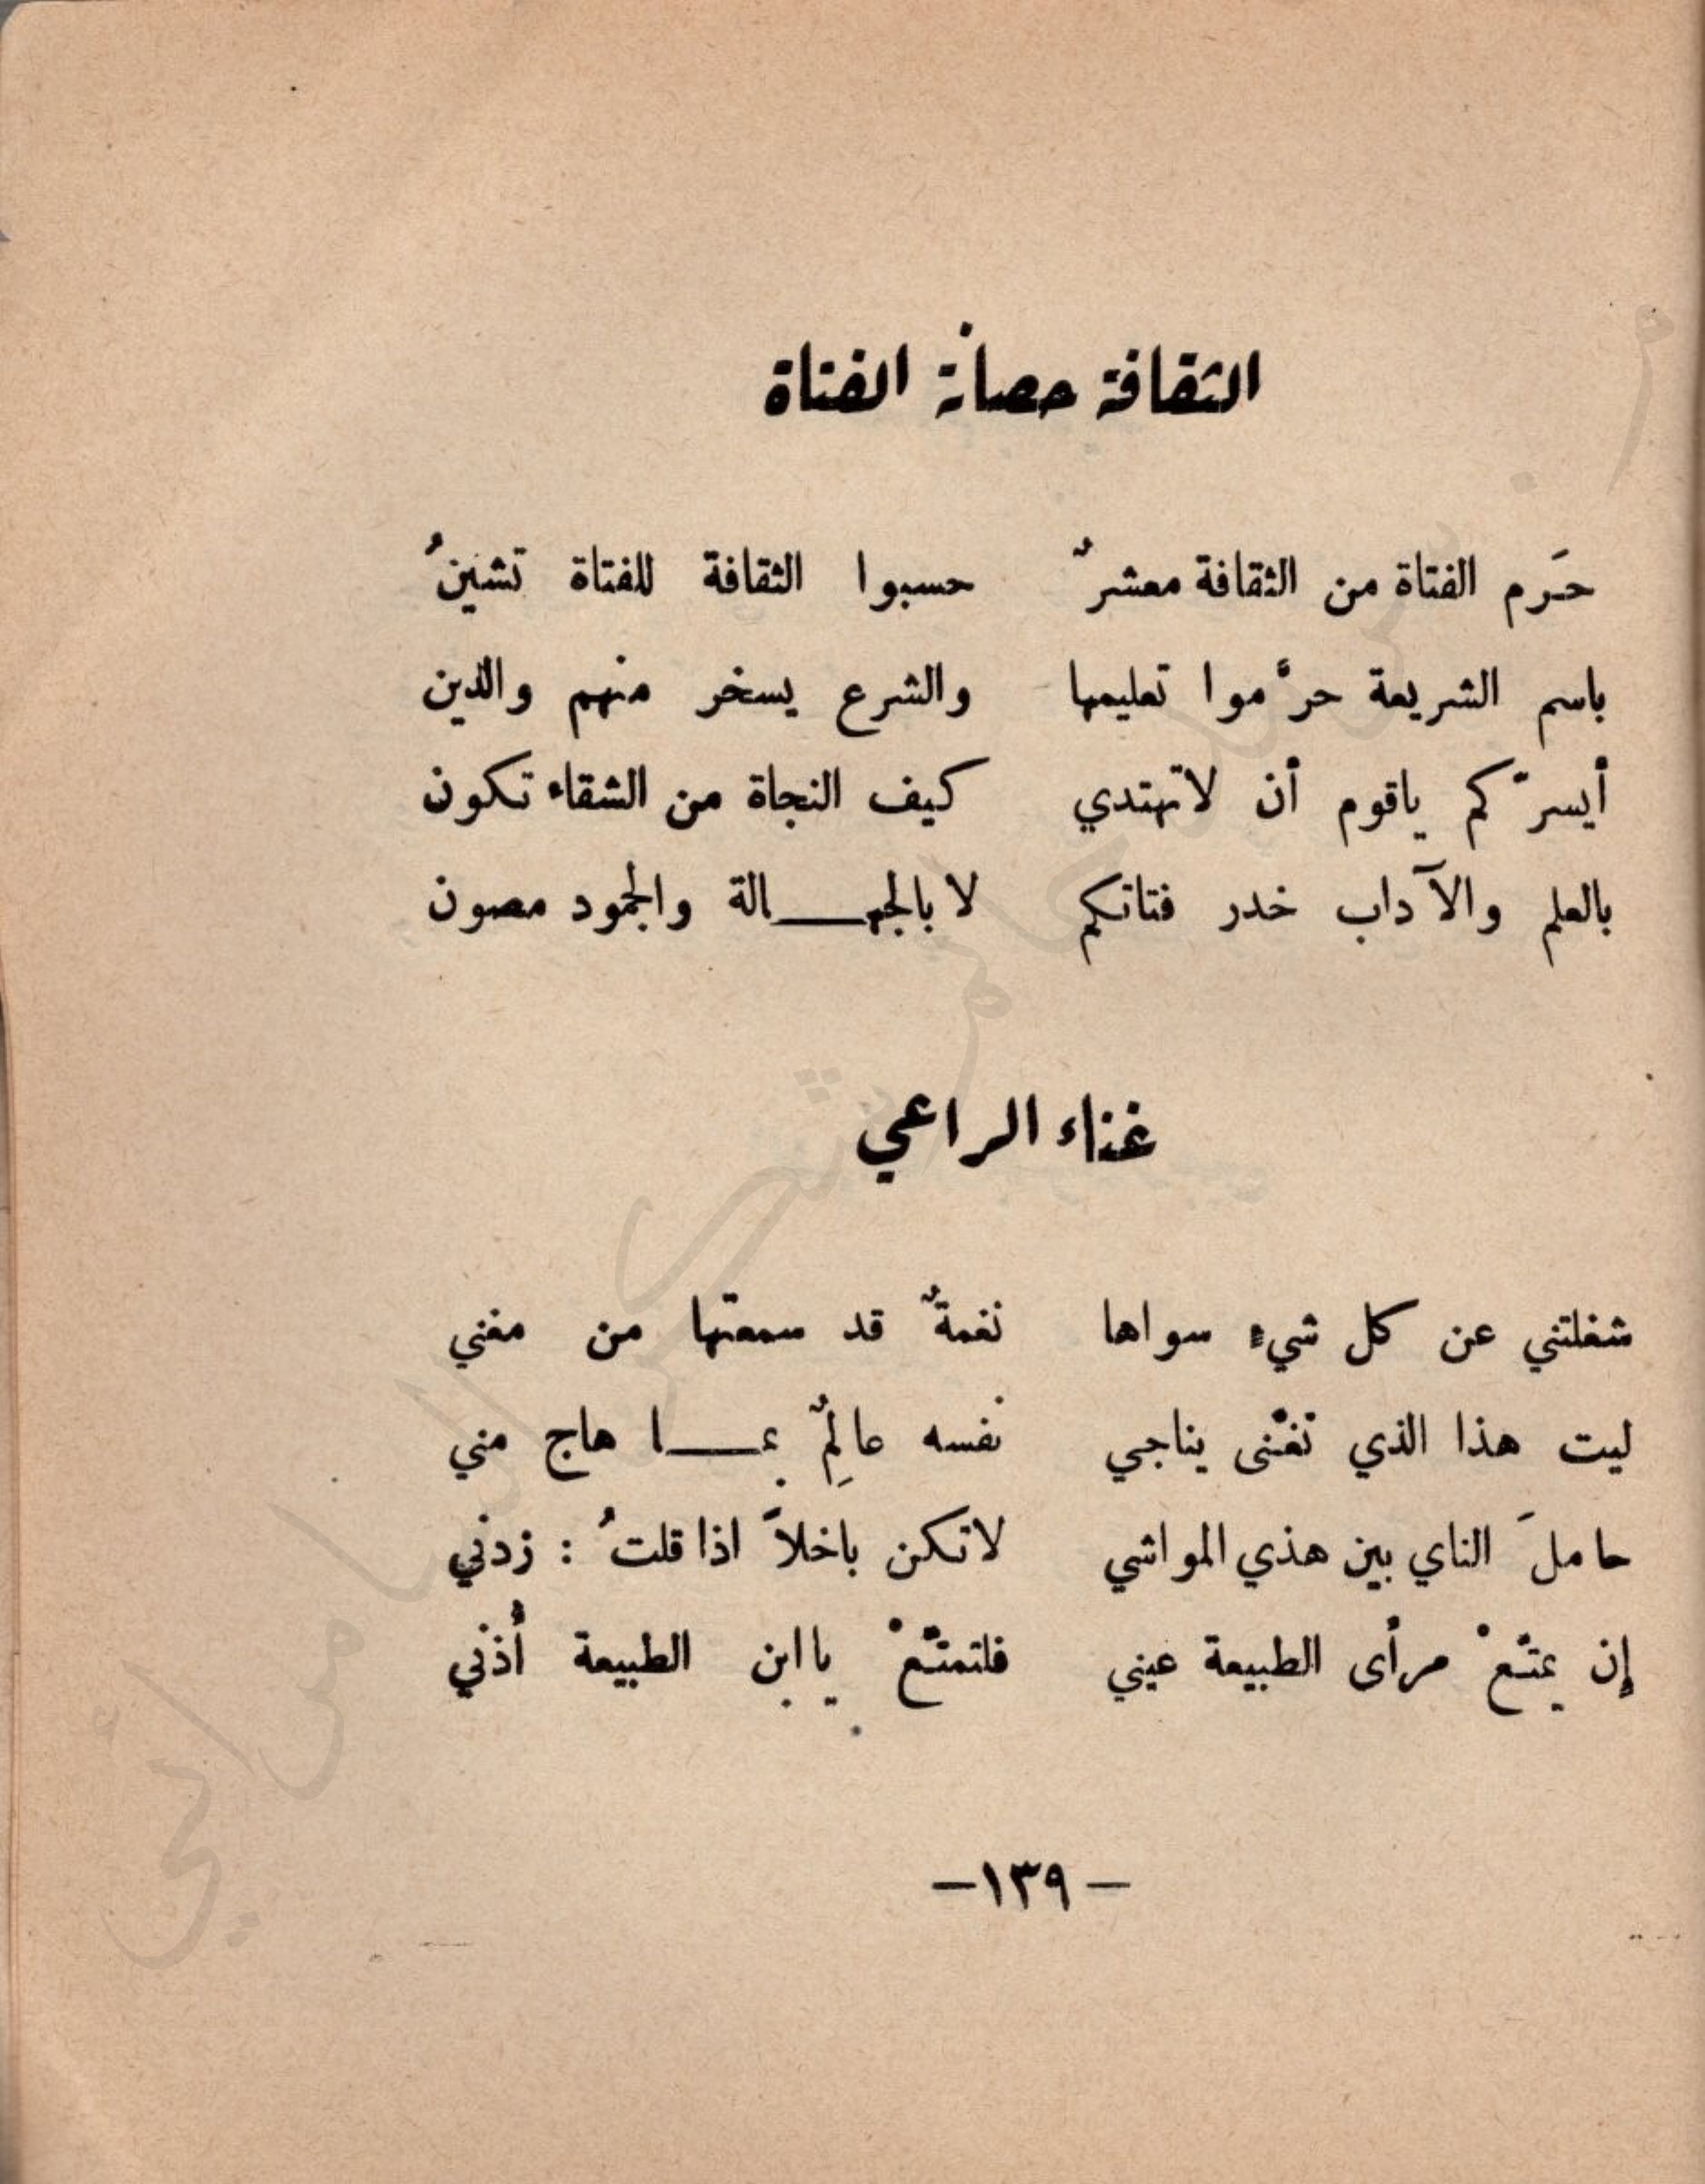 الثقافة حصانة الفتاة
حَرم الفتاة من الثقافة معشرٌ حسبوا الثقافة للفتاة تشينُ
باسم الشريعة حرَّموا تعليمها والشرع يسخر منهم والدين
أيسرّكم ياقوم أن لاتهتدي كيف النجاة من الشقاء تكون
بالعلم والآداب خدر فتاتكم لا بالجهـــالة والجمود مصون
غناء الراعي
شغلتني عن كل شيءٍ سواها نغمةٌ قد سمعتها من مغني
ليت هذا الذي تغنّى يناجي نفسه عالِمٌ بمـــا هاج مني
حاملَ الناي بين هذي المواشي لاتكن باخلاً اذا قلتُ : زدني
إن يمتّعْ مرأى الطبيعة عيني فلتمتّعْ يا ابن الطبيعة أُذني
– ١٣٩ –